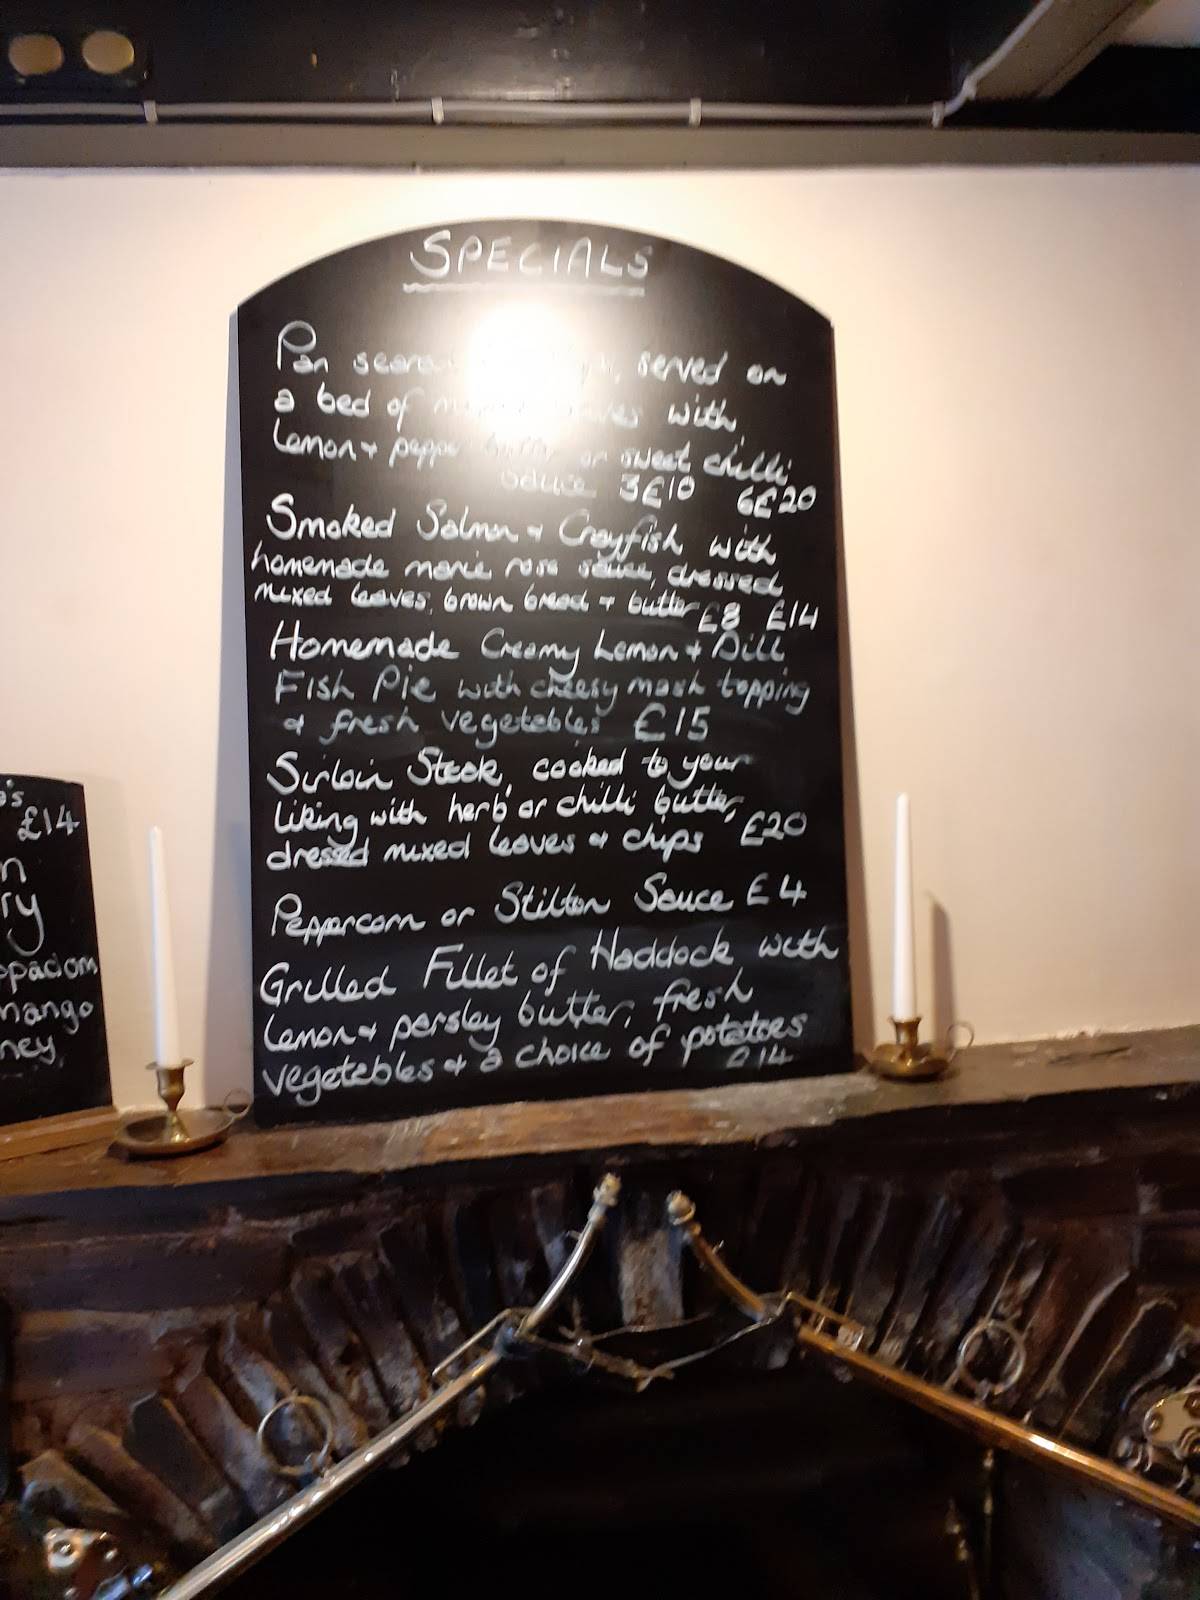 SPECIALS
Pan served on
a bed of with
Lemon + pepper or sweet chilli
sauce 3£10 6£20
Smoked Salmon + Crayfish with
homemade marie rose sauce, dressed
mixed leaves, brown bread + butter £8 £14
Homemade Creamy Lemon + Dill
Fish Pie with cheesy mash topping
& fresh vegetables £15
Sirloin Steak, cooked to your
liking with herb or chilli butter,
dressed mixed leaves & chips £20
Peppercorn or Stilton Sauce £4
Grilled Fillet of Haddock with
lemon + parsley butter, fresh
vegetables + a choice of potatoes
£14
£14
mango